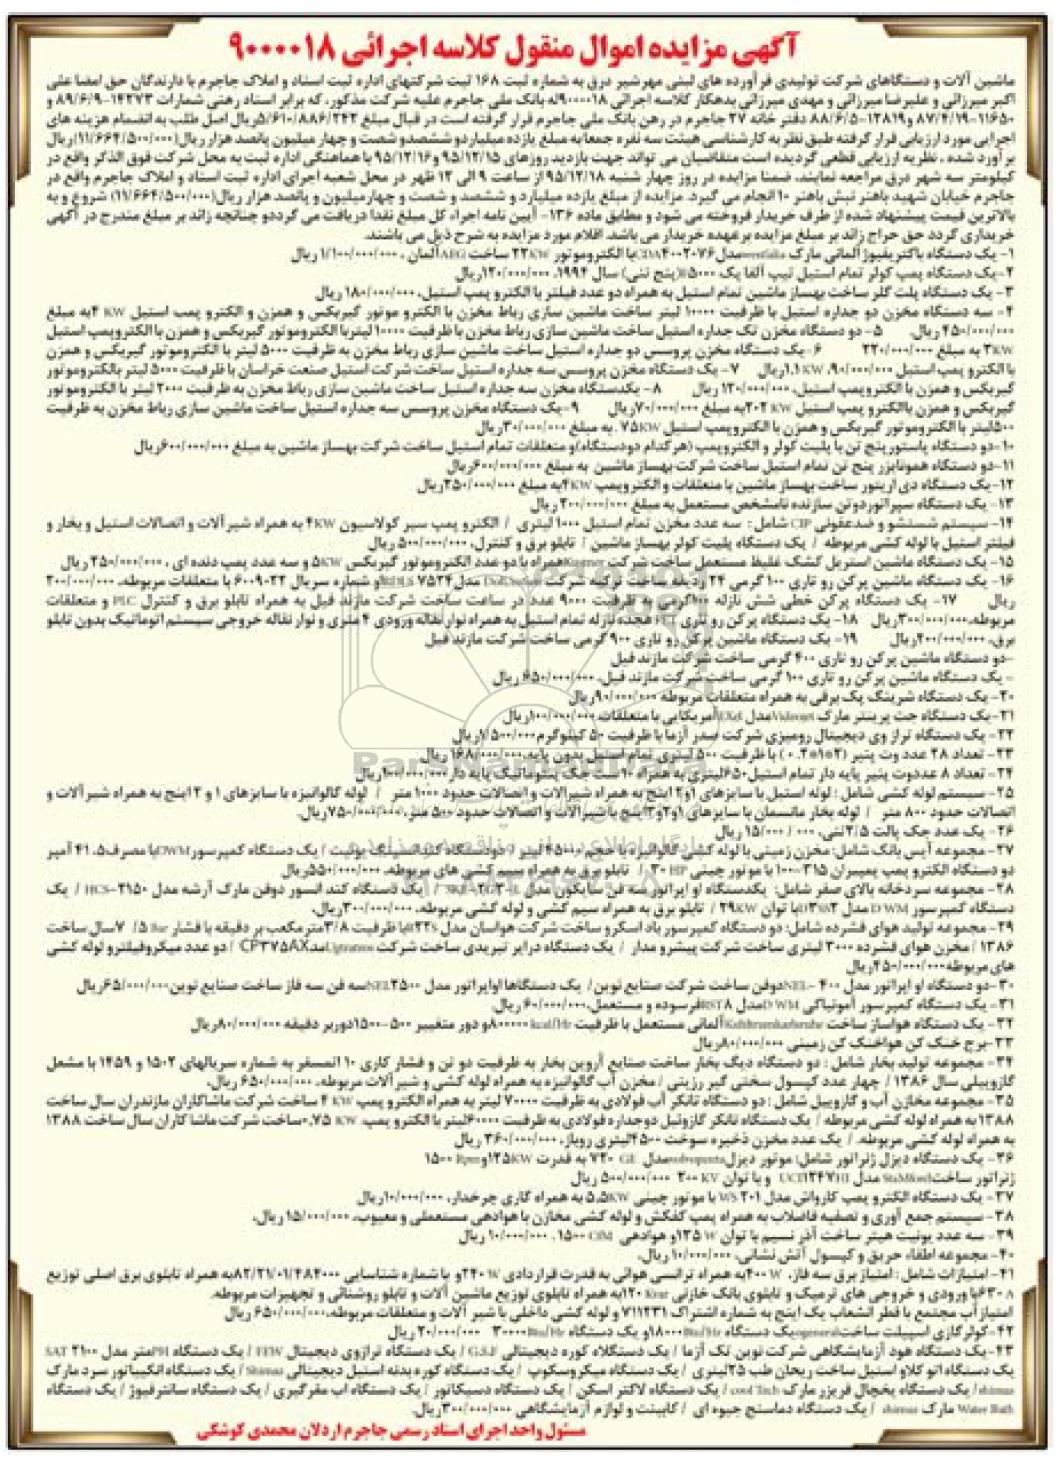 آگهی مزایده اموال منقول کلاسه اجرائی ۹۰۰۰۰۱۸
ماشین آلات و دستگاهای شرکت تولیدی فرآورده های لبنی مهرشیر درق به شماره ثبت ۱۶۸ ثبت شرکتهای اداره ثبت اسناد و املاک جاجرم با دارندگان حق امضا علی
اکبر میرزائی و علیرضا میرزائی و مهدی میرزائی بدهکار کلاسه اجرائی ۹۰۰۰۰۱۸له بانک ملی جاجرم علیه شرکت مذکور، که برابر اسناد رهنی شمارات ۱۴۲۷۳-۸۹/۶/۹ و
۱۱۶۵۰-۸۷/۴/۱۹ و۱۲۸۱۹-۸۸/۶/۵ دفتر خانه ۲۷ جاجرم در رهن بانک ملی جاجرم قرار گرفته است در قبال مبلغ ۵/۶۱۰/۸۸۶/۲۴۲ریال اصل طلب به انضمام هزینه های
اجرایی مورد ارزیابی قرار گرفته طبق نظر به کارشناسی هیئت سه نفره جمعاً به مبلغ یازده میلیارد و ششصد و شصت و چهار میلیون پانصد هزار ریال(۱۱/۶۶۴/۵۰۰/۰۰۰)ریال
بر آورد شده ، نظریه ارزیابی قطعی گردیده است متقاضیان می تواند جهت بازدید روزهای ۹۵/۱۲/۱۵ و۹۵/۱۲/۱۶ با هماهنگی اداره ثبت به محل شرکت فوق الذکر واقع در
کیلومتر سه شهر درق مراجعه نمایند، ضمنا مزایده در روز چهار شنبه ۹۵/۱۲/۱۸ از ساعت ۹ الی ۱۲ ظهر در محل شعبه اجرای اداره ثبت اسناد و املاک جاجرم واقع در
جاجرم خیابان شهید باهنر نبش باهنر ۱۰ انجام می گیرد. مزایده از مبلغ یازده میلیارد و ششصد و شصت و چهارمیلیون و پانصد هزار ریال(۱۱/۶۶۴/۵۰۰/۰۰۰) شروع و به
بالاترین قیمت پیشنهاد شده از طرف خریدار فروخته می شود و مطابق ماده ۱۳۶- آیین نامه اجراء کل مبلغ نقدا دریافت می گرددو چنانچه زائد بر مبلغ مندرج در آگهی
خریداری گردد حق حراج زائد بر مبلغ مزایده بر عهده خریدار می باشد. اقلام مورد مزایده به شرح ذیل می باشند.
۱- یک دستگاه باکتریفیوژ آلمانی مارک westfaliaمدل CDA۴۰۰۲۰۷۶با الکتروموتور ۲۲KW ساخت AEGآلمان ، ۱/۱۰۰/۰۰۰/۰۰۰ ریال
۲-یک دستگاه پمپ کولر تمام استیل تیپ آلفا یک ۵۰۰۰l(پنج تنی) سال ۱۹۹۴، ۱۲۰/۰۰۰/۰۰۰ریال
۳- یک دستگاه پلت کلر ساخت بهساز ماشین تمام استیل به همراه دو عدد فیلتر با الکترو پمپ استیل، ۱۸۰/۰۰۰/۰۰۰ ریال
۴- سه دستگاه مخزن دو جداره استیل با ظرفیت ۱۰۰۰۰ لیتر ساخت ماشین سازی رباط مخزن با الکترو موتور گیربکس و همزن و الکترو پمپ استیل ۴ KWبه مبلغ
۴۵۰/۰۰۰/۰۰۰ ریال. ۵- دو دستگاه مخزن تک جداره استیل ساخت ماشین سازی رباط مخزن با ظرفیت ۱۰۰۰۰ لیتربا الکتروموتور گیربکس و همزن با الکتروپمپ استیل
۳KW به مبلغ ۲۲۰/۰۰۰/۰۰۰ ۶-یک دستگاه مخزن پروسس دو جداره استیل ساخت ماشین سازی رباط مخزن به ظرفیت ۵۰۰۰ لیتر با الکتروموتور گیربکس و همزن
با الکترو پمپ استیل ۱.۱KW، ۹۰/۰۰۰/۰۰۰ریال ۷- یک دستگاه مخزن پروسس سه جداره استیل ساخت شرکت استیل صنعت خراسان با ظرفیت ۵۰۰۰ لیتر بالکتروموتور
گیربکس و همزن با الکتروپمپ استیل، ۱۲۰/۰۰۰/۰۰۰ ریال ۸- یکدستگاه مخزن سه جداره استیل ساخت ماشین سازی رباط مخزن به ظرفیت ۲۰۰۰ لیتر با الکتروموتور
گیربکس و همزن باالکترو پمپ استیل ۲۰۲ KWبه مبلغ ۷۰/۰۰۰/۰۰۰ریال ۹-یک دستگاه مخزن پروسس سه جداره استیل ساخت ماشین سازی رباط مخزن به ظرفیت
۵۰۰لیتر با الکتروموتور گیربکس و همزن با الکتروپمپ استیل ۷۵KW. به مبلغ ۳۰/۰۰۰/۰۰۰ریال
۱۰-دو دستگاه پاستور پنج تن با پلیت کولر و الکتروپمپ (هر کدام دودستگاه)و متعلقات تمام استیل ساخت شرکت بهساز ماشین به مبلغ ۶۰۰/۰۰۰/۰۰۰ریال
۱۱-دو دستگاه هموناییزر پنج تن تمام استیل ساخت شرکت بهساز ماشین به مبلغ ۶۰۰/۰۰۰/۰۰۰ریال
۱۲-یک دستگاه دی اریتور ساخت بهساز ماشین با متعلقات و الکتروپمپ ۴KWبه مبلغ ۲۵۰/۰۰۰/۰۰۰ریال
۱۳- یک دستگاه سپراتوردوتن سازنده نامشخص مستعمل به مبلغ ۲۰۰/۰۰۰/۰۰۰ ریال
۱۴- سیستم شستشو و ضدعفونی CIP شامل : سه عدد مخزن تمام استیل ۱۰۰۰ لیتری / الکترو پمپ سیر کولاسیون ۴KW به همراه شیرآلات و اتصالات استیل و بخار و
فیلتر استیل با لوله کشی مربوطه / یک دستگاه پلیت کولر بهساز ماشین / تابلو برق و کنترل، ۵۰۰/۰۰۰/۰۰۰ ریال
۱۵- یک دستگاه ماشین استریل کشک غلیظ مستعمل ساخت شرکت همراه با دو عدد الکتروموتور گیربکس ۵KW و سه عدد پمپ دنده ای ، ۲۵۰/۰۰۰/۰۰۰ ریال
۱۶- یک دستگاه ماشین پرکن رو تاری ۱۰۰ گرمی ۲۴ ردیفه ساخت ترکیه شرکت مدل ۷۵۲۴ و شماره سریال ۶۰۰۹۰۲۲ با متعلقات مربوطه، ۲۰۰/۰۰۰/۰۰۰
ریال ۱۷- یک دستگاه پرکن خطی شش نازله ۱۰۰گرمی به ظرفیت ۹۰۰۰ عدد در ساعت ساخت شرکت مازند فیل به همراه تابلو برق و کنترل PLC و متعلقات
مربوطه،۳۰۰/۰۰۰/۰۰۰ریال ۱۸- یک دستگاه پرکن رو تاری هجده نازله تمام استیل به همراه نوار نقاله ورودی ۴ متری و نوار نقاله خروجی سیستم اتوماتیک بدون تابلو
برق، ۲۰۰/۰۰۰/۰۰۰ریال ۱۹- یک دستگاه ماشین پرکن رو تاری ۹۰۰ گرمی ساخت شرکت مازند فیل
-دو دستگاه ماشین پرکن رو تاری ۴۰۰ گرمی ساخت شرکت مازند فیل
- یک دستگاه ماشین پرکن رو تاری ۱۰۰ گرمی ساخت شرکت مازند فیل، ۶۵۰/۰۰۰/۰۰۰ ریال
۲۰- یک دستگاه شرینک پک برقی به همراه متعلقات مربوطه ۹۰/۰۰۰/۰۰۰ریال
۲۱- یک دستگاه جت پرینتر مارک Videojetمدل EXelآمریکایی با متعلقات، ۱۰۰/۰۰۰/۰۰۰ریال
۲۲- یک دستگاه ترازوی دیجیتال رومیزی شرکت صدر آزما با ظرفیت ۵۰ کیلوگرم ۱/۵۰۰/۰۰۰ریال
۲۳- تعداد ۲۸ عدد وت پنیر با ظرفیت ۵۰۰ لیتری تمام استیل بدون پایه، ۱۶۸/۰۰۰/۰۰۰ ریال
۲۴- تعداد ۸ عددوت پنیر پایه دار تمام استیل۶۵۰لیتری به همراه ۱۰ست جک پنوماتیک پایه دار ۱۰۰/۰۰۰/۰۰۰ریال
۲۵- سیستم لوله کشی شامل : لوله استیل با سایزهای ۱و۲ اینچ به همراه شیرآلات و اتصالات حدود ۱۰۰۰ متر / لوله گالوانیزه با سایزهای ۱ و ۲ اینچ به همراه شیرآلات و
اتصالات حدود ۸۰۰ متر / لوله بخار مانسمان با سایزهای ۱و۲و۳ اینچ با شیرآلات و اتصالات حدود ۵۰۰ متر، ۷۵۰/۰۰۰/۰۰۰ریال.
۲۶- یک عدد جک پالت ۲/۵تنی، ۱۵/۰۰۰ / ۰۰۰ ریال
۲۷- مجموعه آیس بانک شامل: مخزن زمینی با لوله کشی گالوانیزه با حجم ۴۵۰۰۰لیتر / دودستگاه کندانسینگ یونیت / یک دستگاه کمپرسورDWMبا مصرف۴۱.۵ آمپر
دو دستگاه الکترو پمپ پمپیران ۳۱۵-۱۰۰ با موتور چینی ۳۰ HP / تابلو برق به همراه سیم کشی های مربوطه، ۵۵۰/۰۰۰/۰۰۰ریال
۲۸- مجموعه سردخانه بالای صفر شامل: یکدستگاه او اپراتور سه فن سایکون مدل / یک دستگاه کند انسور دوفن مارک آرشه مدل HCS-۲۱۵۰ / یک
دستگاه کمپرسور DWM مدل D۳۳S۲با توان ۲۹KW / تابلو برق به همراه سیم کشی و لوله کشی مربوطه، ۳۰۰/۰۰۰/۰۰۰ریال.
۲۹- مجموعه تولید هوای فشرده شامل: دو دستگاه کمپرسور باد اسکرو ساخت شرکت هواسان مدل با ظرفیت ۳/۸مترمکعب بر دقیقه با فشار ۷/۵ Bar سال ساخت
۱۳۸۶ / مخزن هوای فشرده ۳۰۰۰ لیتری ساخت شرکت پیشرو مدار / یک دستگاه درایر تبریدی ساخت شرکت مدلCF۳۷۵AX / دو عدد میکروفیلترو لوله کشی
های مربوطه۴۵۰/۰۰۰/۰۰۰ریال
۳۰-دو دستگاه او اپراتور مدل NEL- ۴۰۰دوفن ساخت شرکت صنایع نوین/ یک دستگاها اواپراتور مدل NEL۲۵۰۰سه فن سه فاز ساخت صنایع نوین۶۵/۰۰۰/۰۰۰ریال
۳۱- یک دستگاه کمپرسور آمونیاکی DWMمدل RST۸فرسوده و مستعمل، ۶۰/۰۰۰/۰۰۰ ریال
۳۲- یک دستگاه هواساز ساخت آلمانی مستعمل با ظرفیت ۸۰۰۰۰۰kcal/Hrو دور متغییر ۵۰۰-۱۵۰۰دوربر دقیقه ۸۰/۰۰۰/۰۰۰ریال
۳۳-برج خنک کن هواخنک کن زمینی ۸۰/۰۰۰/۰۰۰ریال
۳۴- مجموعه تولید بخار شامل : دو دستگاه دیگ بخار ساخت صنایع آروین بخار به ظرفیت دو تن و فشار کاری ۱۰ اتمسفر به شماره سریالهای ۱۵۰۲ و ۱۴۵۹ با مشعل
گازوییلی سال ۱۳۸۶ / چهار عدد کپسول سختی گیر رزینی / مخزن آب گالوانیزه به همراه لوله کشی و شیرآلات مربوطه، ۶۵۰/۰۰۰/۰۰۰ ریال.
۳۵- مجموعه مخازن آب و گازوییل شامل : دو دستگاه تانکر آب فولادی به ظرفیت ۷۰۰۰۰ لیتر به همراه الکترو پمپ ۴ KW ساخت شرکت ماشاکاران مازندران سال ساخت
۱۳۸۸ به همراه لوله کشی مربوطه / یک دستگاه تانکر گازوئیل دوجداره فولادی به ظرفیت ۶۰۰۰۰لیتر با الکترو پمپ ۰.۷۵ KWساخت شرکت ماشا کاران سال ساخت ۱۳۸۸
به همراه لوله کشی مربوطه. / یک عدد مخزن ذخیره سوخت ۴۵۰۰لیتری روباز، ۳۶۰/۰۰۰/۰۰۰ ریال
۳۶- یک دستگاه دیزل ژنراتور شامل: موتور دیزلvolvopentaمدل ۷۲۰ GE به قدرت ۱۲۵KWو۱۵۰۰ Rpm
ژنراتور ساختStaMford مدل و با توان ۲۰۰ KV ۵۰۰/۰۰۰/۰۰۰ ریال
۳۷- یک دستگاه الکترو پمپ کارواش مدل WS ۲۰۱ با موتور چینی ۵.۵KW به همراه گاری چرخدار، ۱۰/۰۰۰/۰۰۰ریال
۳۸- سیستم جمع آوری و تصفیه فاضلاب به همراه پمپ کفکش و لوله کشی مخازن با هوادهی مستعملی و معیوب، ۱۵/۰۰۰/۰۰۰ ریال.
۳۹- سه عدد یونیت هیتر ساخت آذر نسیم با توان ۱۳۵ Wو هوادهی ۱۵۰۰ CfM ، ۱۰/۰۰۰/۰۰۰ ریال
۴۰- مجموعه اطفاء حریق و کپسول آتش نشانی، ۱۰/۰۰۰/۰۰۰ ریال.
۴۱- امتیازات شامل : امتیاز برق سه فاز، ۴۰۰ Wبه همراه ترانسی هوائی به قدرت قراردادی ۲۴۰ Wو با شماره شناسایی ۸۲/۲۱/۰۱/۴۸۴۰۰۰به همراه تابلوی برق اصلی توزیع
۶۳۰ Aبا ورودی و خروجی های ترمیک و تابلوی بانک خازنی ۱۲۰ Kvarبه همراه تابلوی توزیع ماشین آلات و تابلو روشنائی و تجهیزات مربوطه.
امتیاز آب مجتمع با قطر انشعاب یک اینچ به شماره اشتراک ۷۱۱۲۳۱ و لوله کشی داخلی با شیر آلات و متعلقات مربوطه،۶۵۰/۰۰۰/۰۰۰ ریال
۴۲-کولر گازی اسپیلت ساختogeneralیک دستگاه ۱۸۰۰۰Btu/Hrو یک دستگاه ۳۰۰۰۰Btu/Hr ۲۰/۰۰۰/۰۰۰ ریال
۴۳-یک دستگاه هود آزمایشگاهی شرکت نوین تک آزما / یک دستگاه کوره دیجیتالی G.S.F / یک دستگاه ترازوی دیجیتال FEW / یک دستگاه PHمتر مدل SAT ۲۱۰۰
یک دستگاه اتو کلاو استیل ساخت ریحان طب ۲۵لیتری / یک دستگاه میکروسکوپ / یک دستگاه کوره بدنه استیل دیجیتالی Shimaz / یک دستگاه انکیباتور سرد مارک
shimaz/ یک دستگاه یخچال فریزر مارک cool Tech/ یک دستگاه لاکتر اسکن / یک دستگاه دسیکاتور / یک دستگاه اب مقرگیری / یک دستگاه سانترفیوژ / یک دستگاه
Water Bath مارک shimaz / یک دستگاه دماسنج جیوه ای / کابینت و لوازم آزمایشگاهی ۳۰۰/۰۰۰/۰۰۰ریال.
مسئول واحد اجرای اسناد رسمی جاجرم اردلان محمدی کوشکی